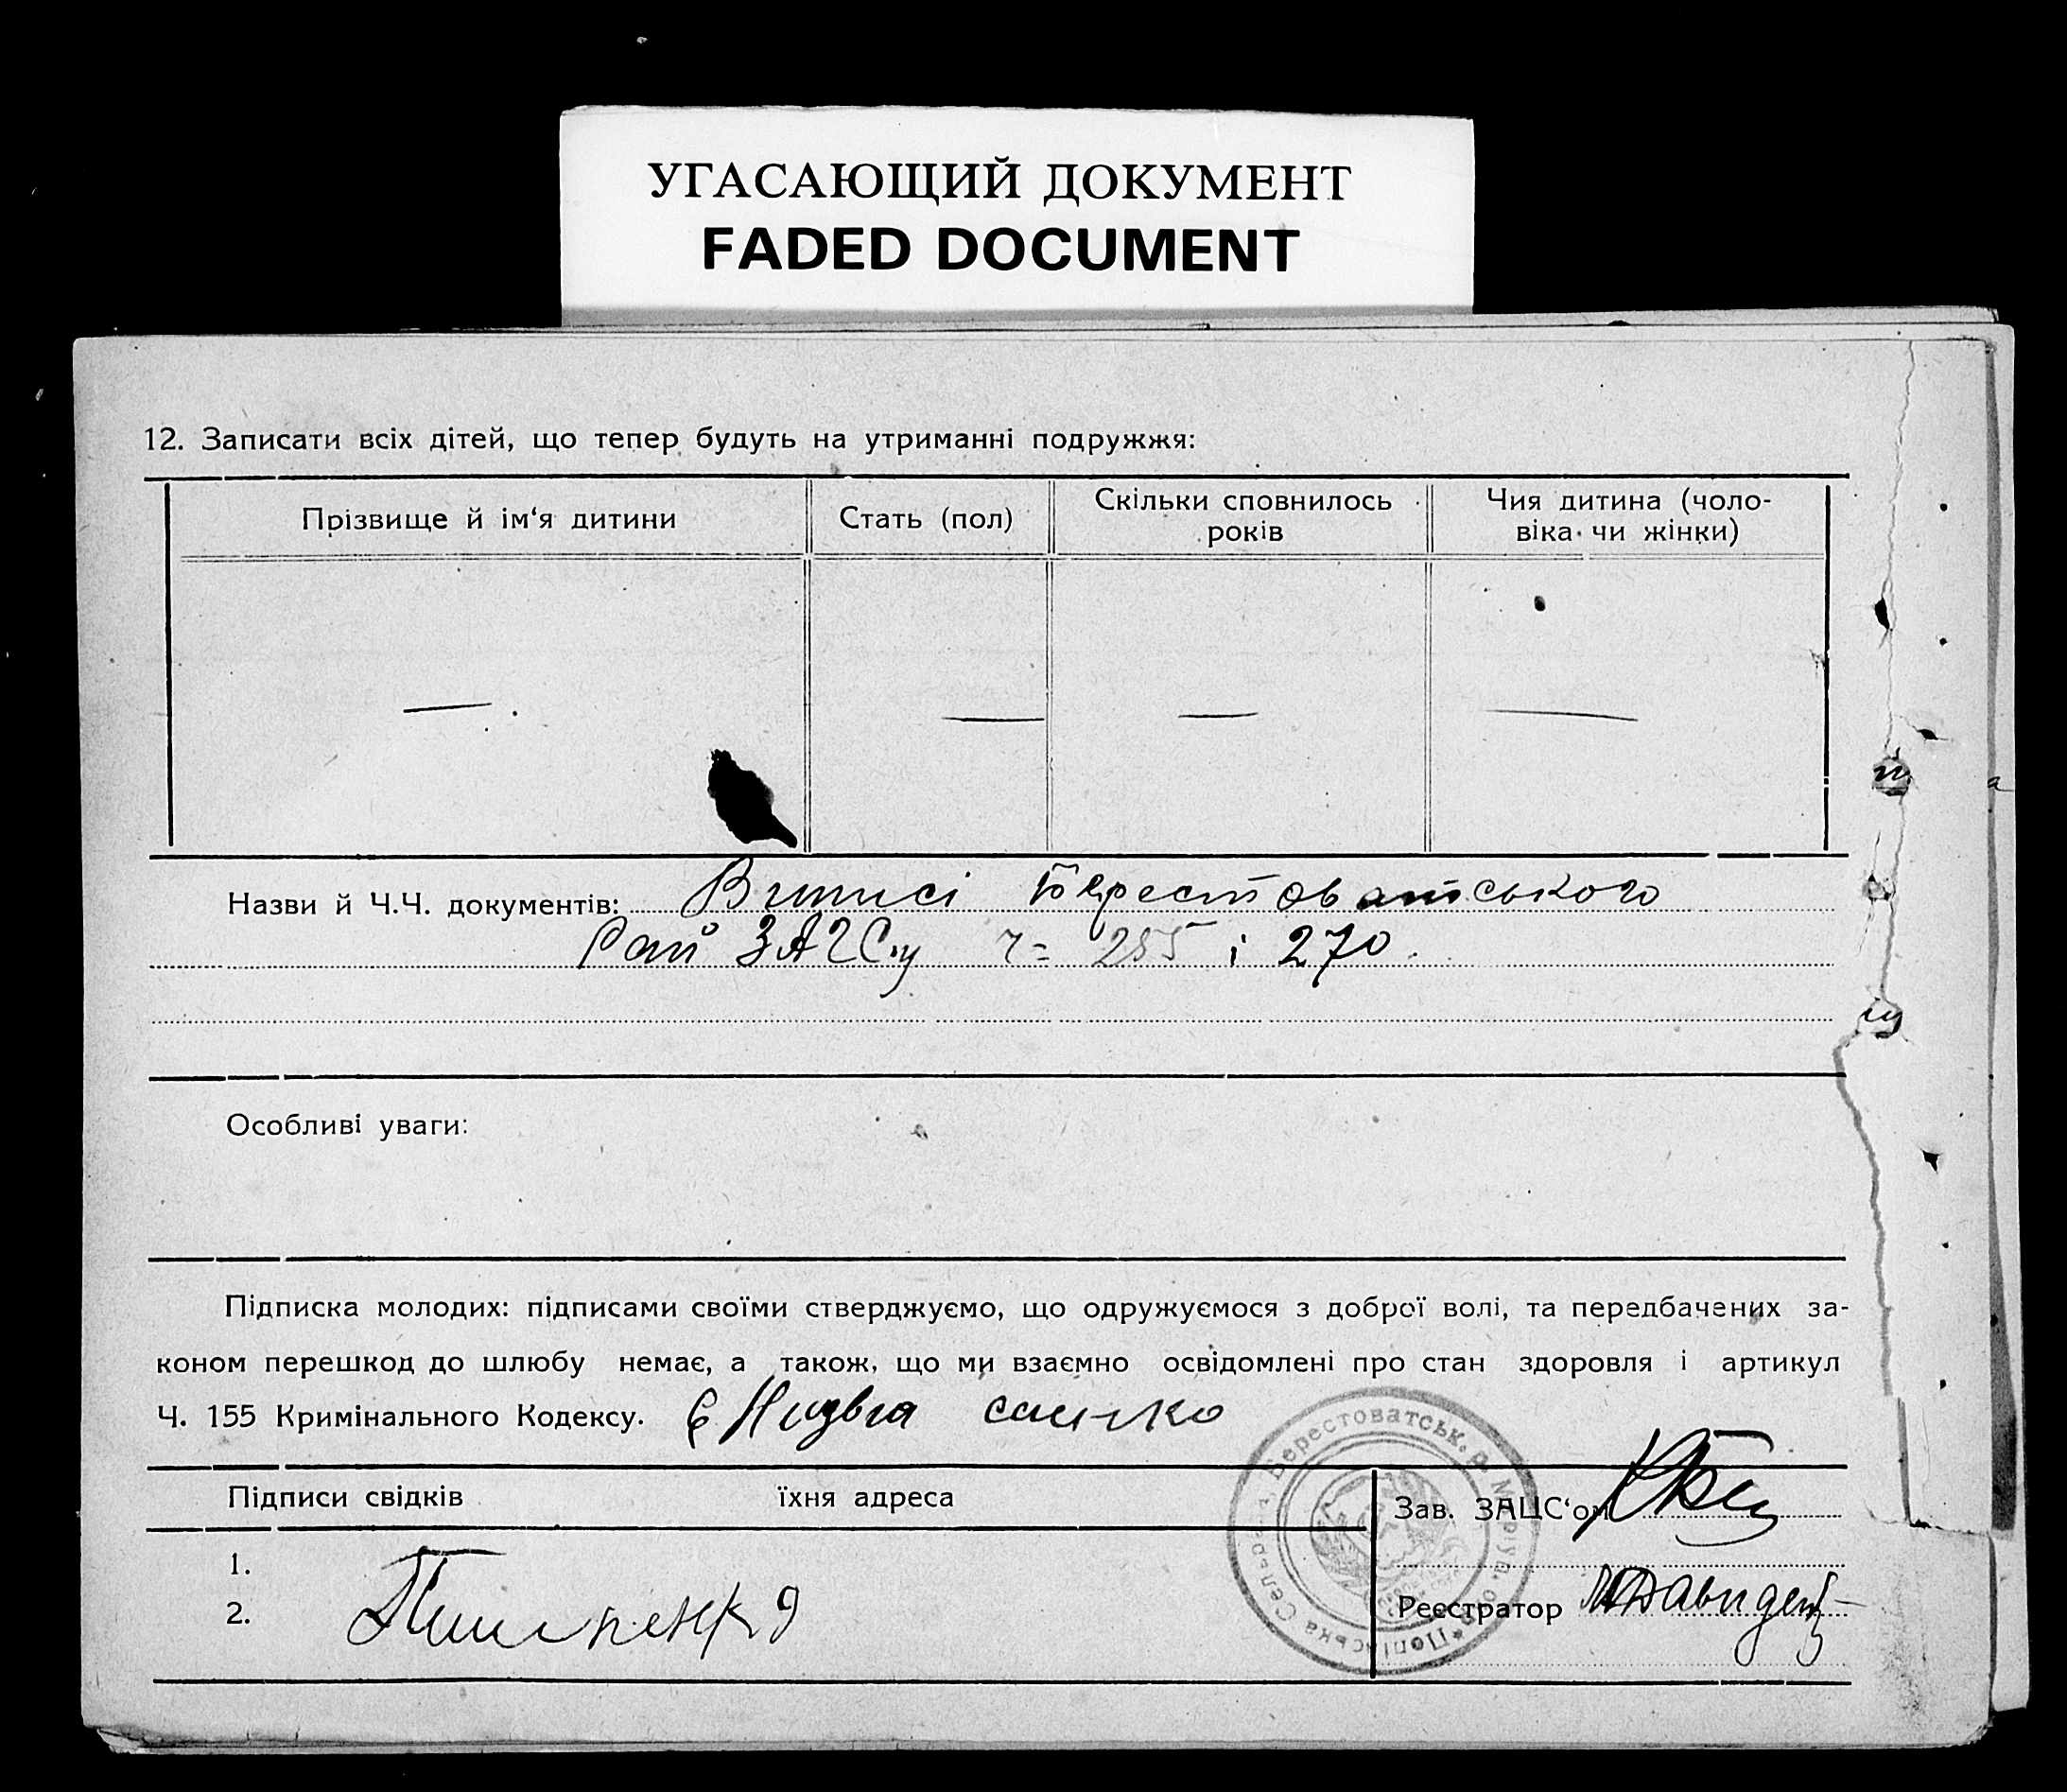 УГАСАЮЩИЙ ДОКУМЕНТ
FADED DOCUMENT
12. Записати всіх дітей, що тепер будуть на утриманні подружжя:
Прізвище й ім‘я дитини
Стать (пол)
Скільки сповнилось
років
Чия дитина (чоло-
віка чи жінки)
Назви й Ч.Ч. документів: Виписі Берестоватського
Рай ЗАГСу ч= 255 і 270.
Особливі уваги:
Підписка молодих: підписами своїми стверджуємо, що одружуємося з доброї волі, та передбачених за-
коном перешкод до шлюбу немає, а також, що ми взаємно освідомлені про стан здоровля і артикул
Ч. 155 Кримінального Кодексу.
Підписи свідків
їхня адреса
Зав. ЗАЦС‘ом
1.
2.
Реєстратор
Берестоватськ. р.